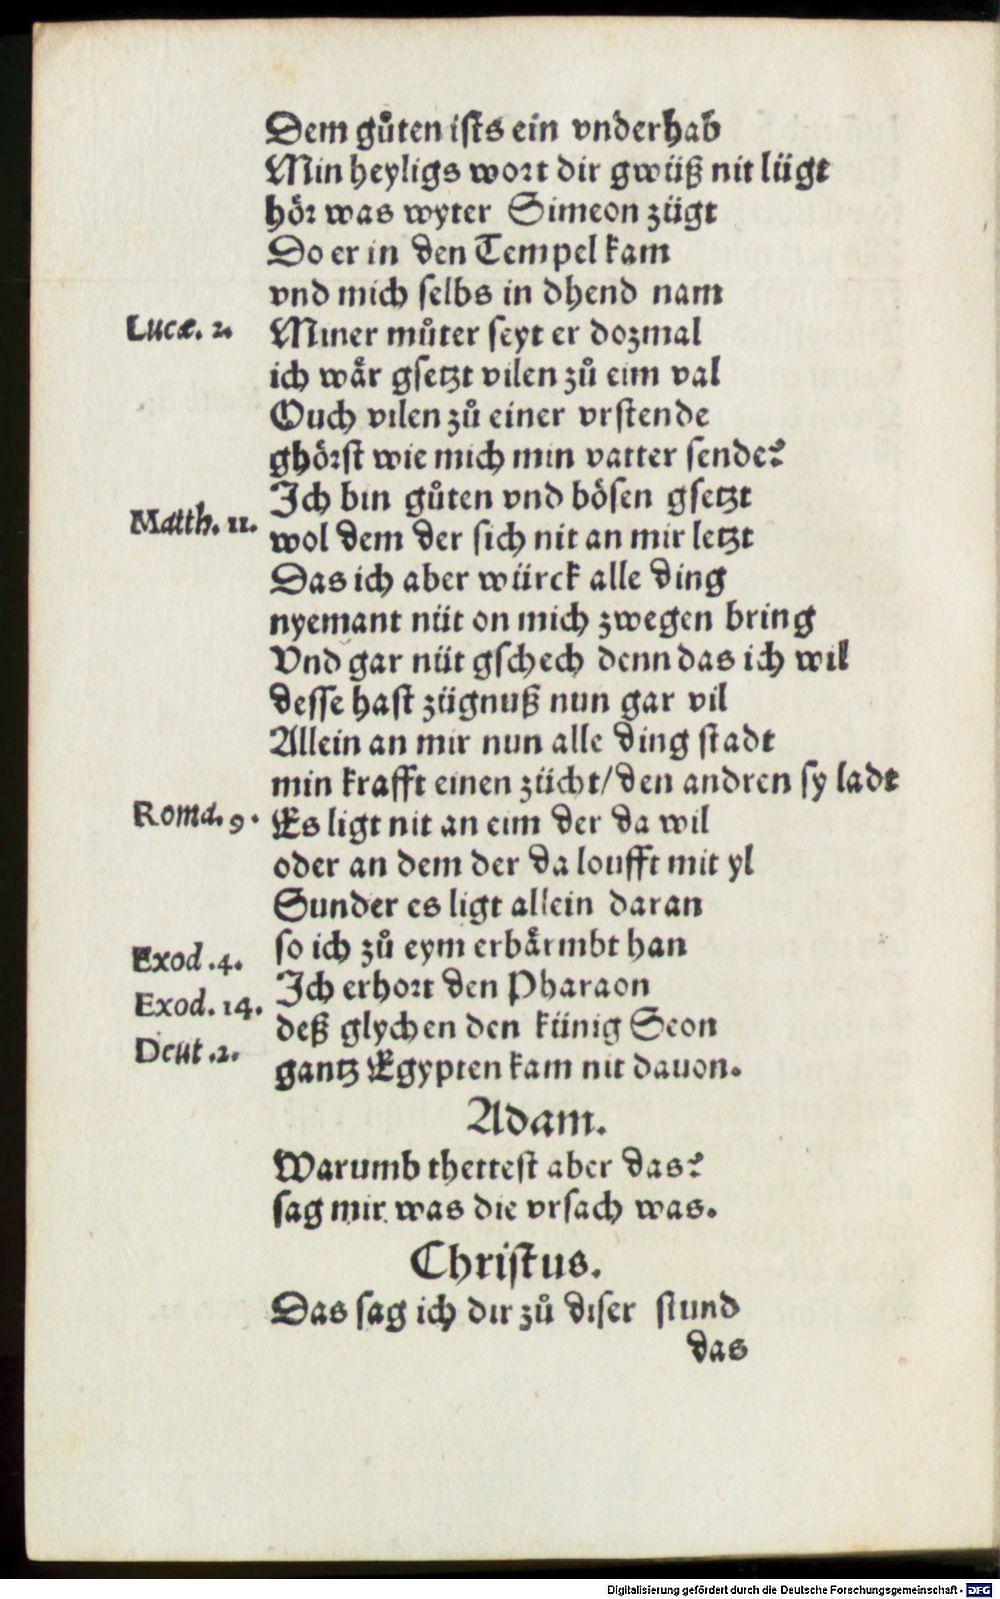 Dem gůten ists ein vnderhab
Min heyligs wort dir gwüß nit lügt
hör was wyter Simeon zügt
Do er in den Tempel kam
vnd mich selbs in dhend nam
Lucæ. 2. Miner můter seyt er dozmal
ich wår gsetzt vilen zů eim val
Ouch vilen zů einer vrstende
ghörst wie mich min vatter sende?
Ich bin gůten vnd bösen gsetzt
Matth. 11. wol dem der sich nit an mir letzt
Das ich aber würck alle ding
nyemant nüt on mich zwegen bring
Vnd gar nüt gschech denn das ich wil
desse hast zügnuß nun gar vil
Allein an mir nun alle ding stadt
min krafft einen zücht/den andren sy ladt
Roma. 9. Es ligt nit an eim der da wil
oder an dem der da loufft mit yl
Sunder es ligt allein daran
so ich zů eym erbårmbt han
Exod. 4. Ich erhort den Pharaon
Exod. 14. deß glychen den künig Seon
Deut. 2. gantz Egypten kam nit dauon.
Adam.
Warumb thettest aber das?
sag mir was die vrsach was.
Christus.
Das sag ich dir zů diser stund
das
Digitalisierung gefördert durch die Deutsche Forschungsgemeinschaft - DFG